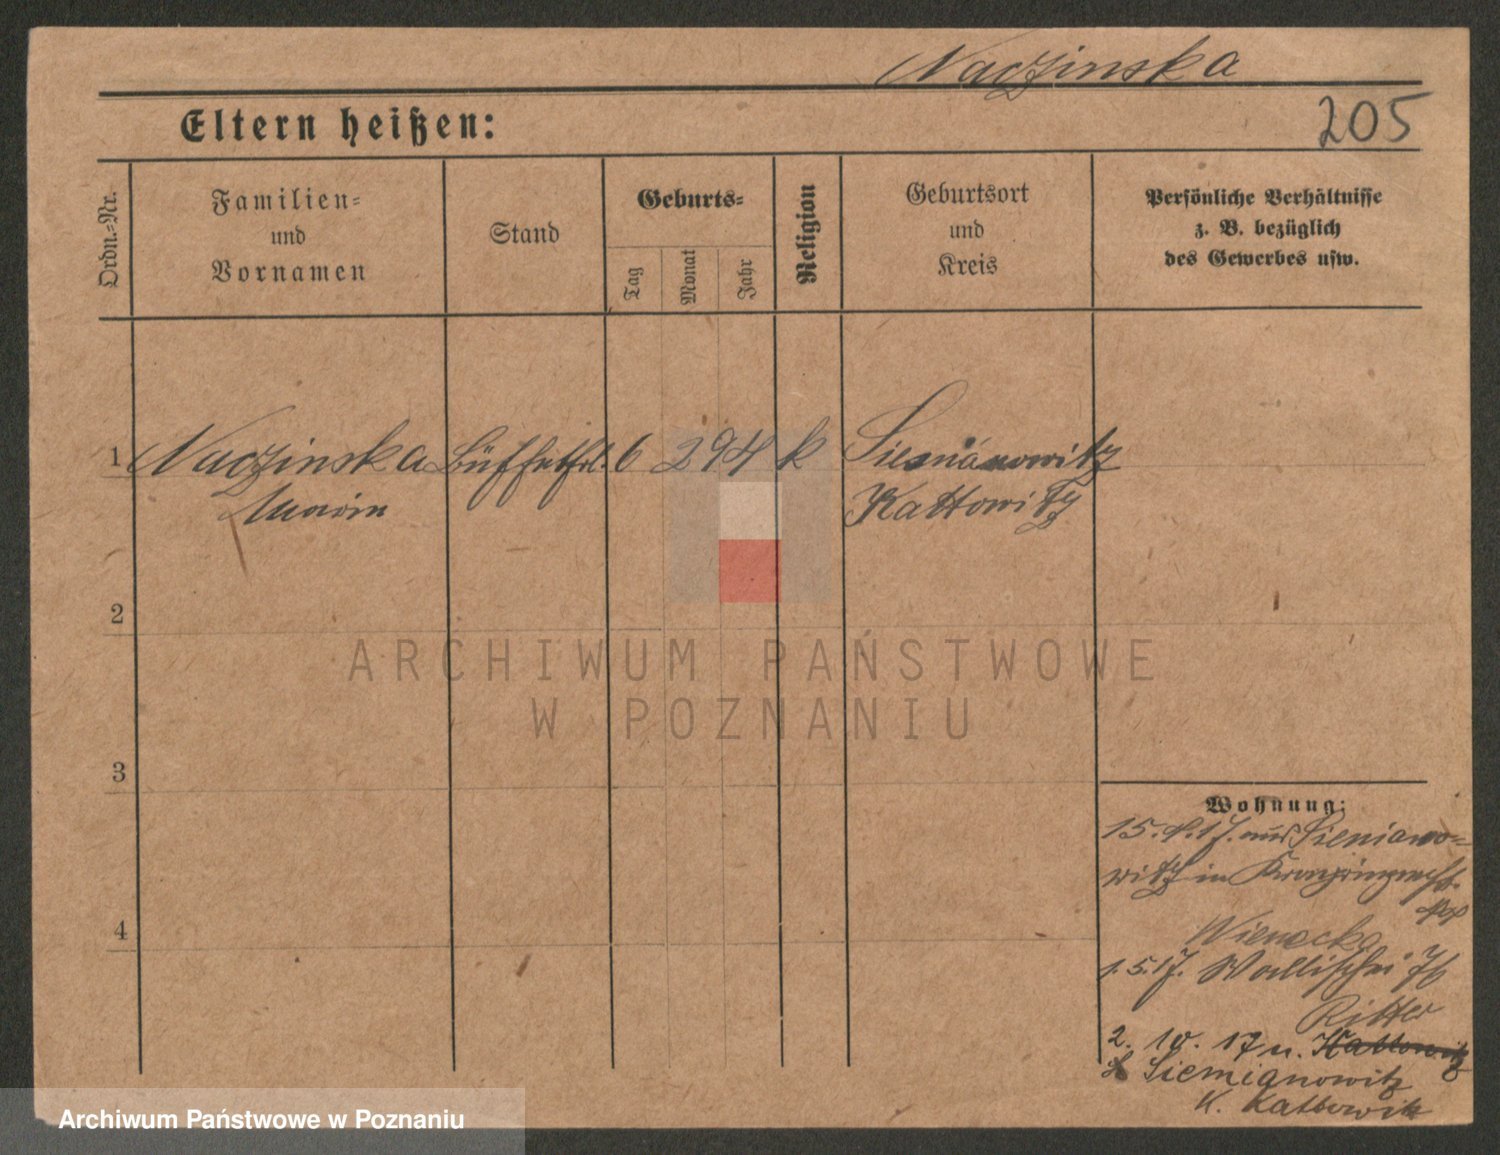 Naczinska
205
Eltern heißen:
Ordn.-Nr.
Familien-
und
Vornamen
Stand
Geburts-
Tag
Monat
Jahr
Religion
Geburtsort
und
Kreis
Persönliche Verhältnisse
z. B. bezüglich
des Gewerbes usw.
1 Naczinska Büffetfrl. 6 2 94 k Siemianowitz
Kattowitz
2
ARCHIWUM PAŃSTWOWE
W POZNANIU
3
4
Wohnung:
15. 4. 17. aus Siemiano-
witz in
1. 5. 17. Wallischei
Ritter
2. 10. 17 n. Kattowitz
Siemianowitz
K. Kattowitz
Archiwum Państwowe w Poznaniu